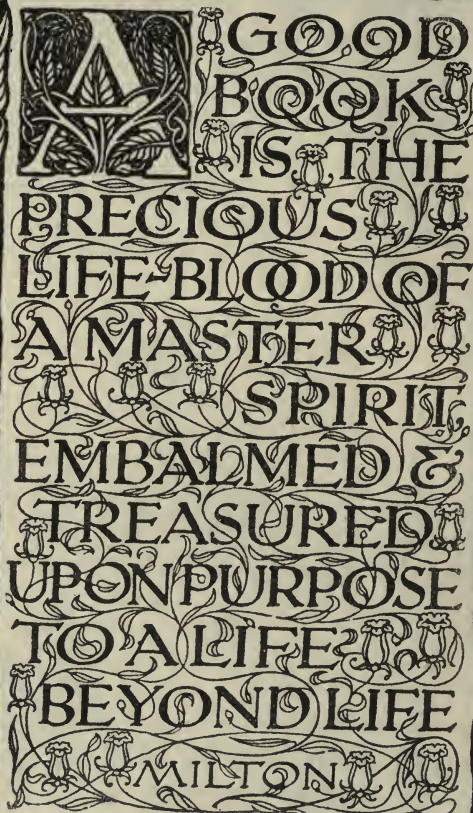 A GOOD
BOOK
IS THE
PRECIOUS
LIFE-BLOOD OF
A MASTER
SPIRIT,
EMBALMED &
TREASURED
UPON PURPOSE
TO A LIFE
BEYOND LIFE
MILTON